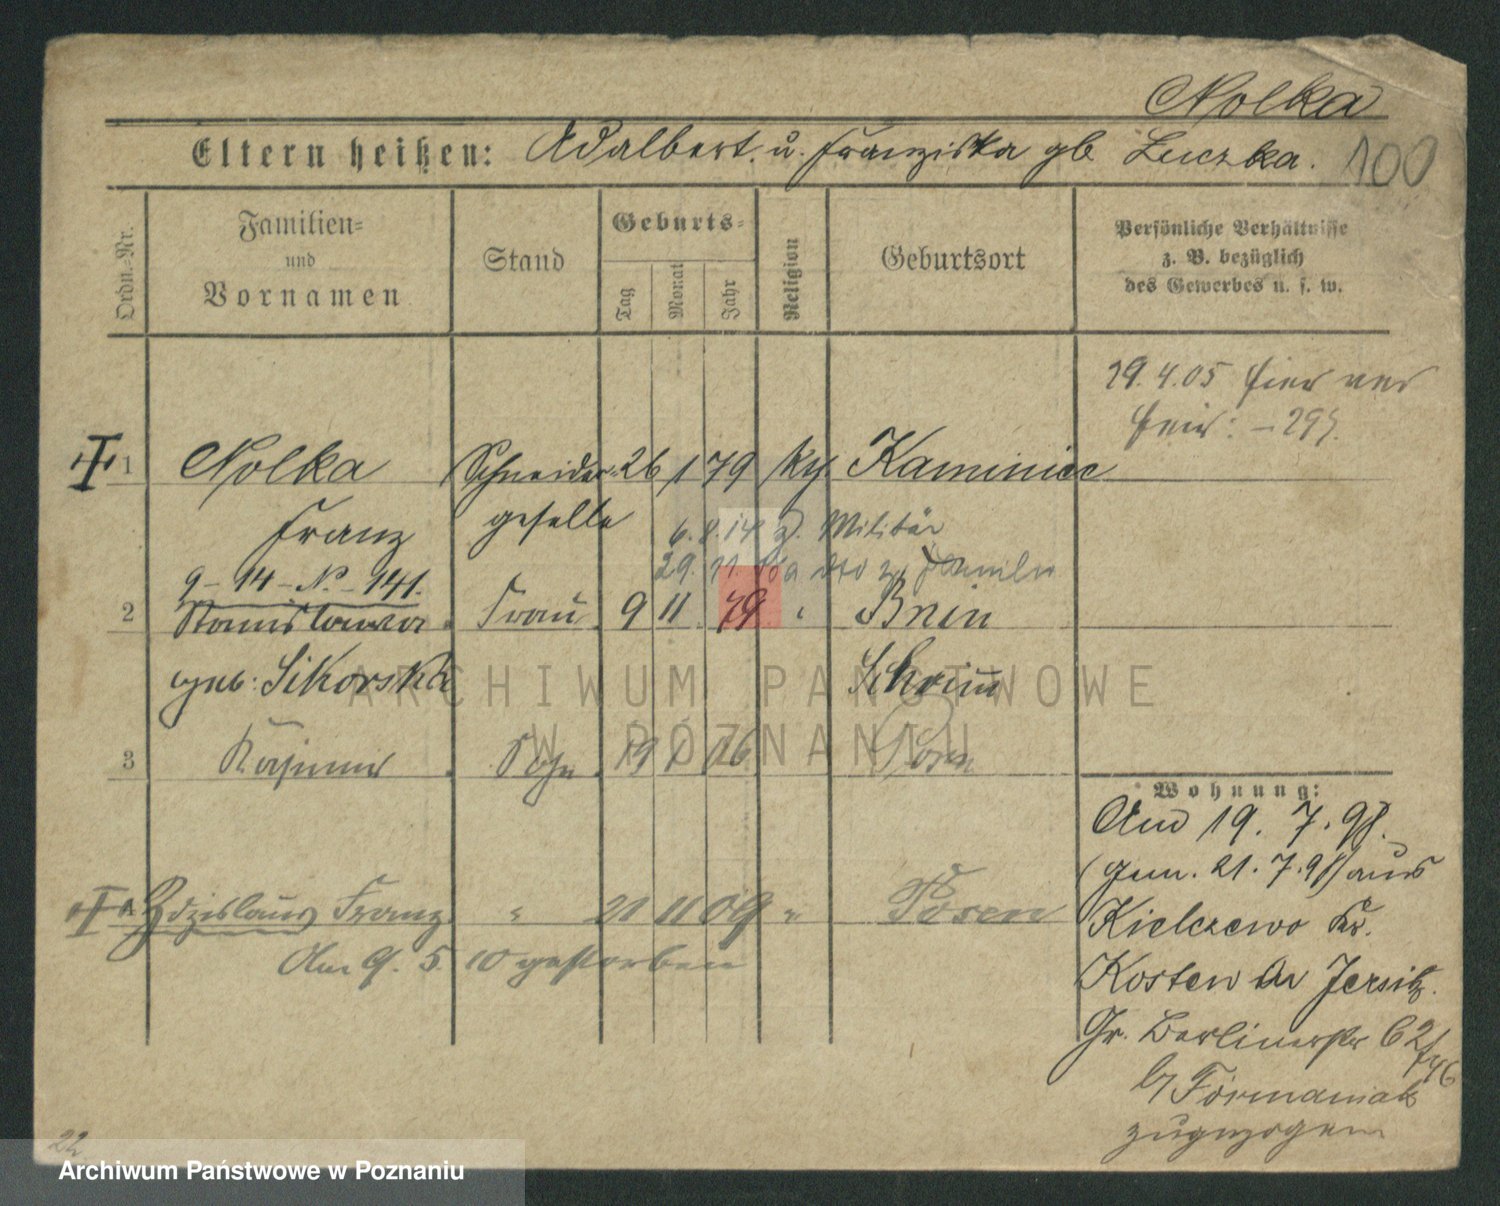 Nolka
Eltern heißen: Adalbert. u. Franziska gb Luczka. 100
Ordn.-Nr.
Familien-
und
Vornamen
Stand
Geburts-
Tag
Monat
Jahr
Religion
Geburtsort
Persönliche Verhältnisse
z. B. bezüglich
des Gewerbes u. s. w.
19.4.05 hier
1 Nolka Schneider 26 1 79 Kaminiec
Franz geselle
6.8.14 z. Militär
29. 11.
9-14-No-141.
2 Stanislawa Frau 9 11 79 Bnin
geb: Sikorska Schrimm
3 Kasimir Sohn 19 1 16 Posen
Zdzislaus Franz " 21 11 09 " Posen
Am 9. 5. 10 gestorben
Wohnung:
Am 19. 7. 98.
(gem. 21. 7. 98) aus
Kielczewo Kr.
Kosten in Jersitz.
Gr. Berlinerstr 62
b/ Formaniak
zugezogen
22
ARCHIWUM PAŃSTWOWE
W POZNANIU
Archiwum Państwowe w Poznaniu